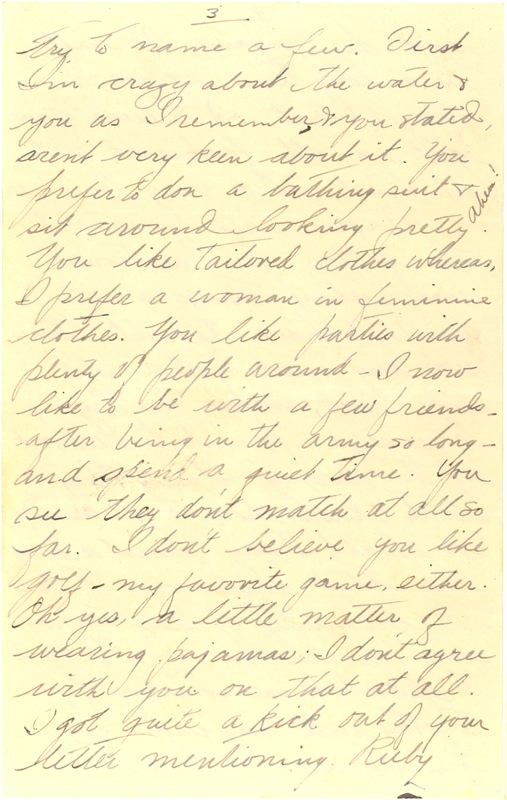 3
Try to name a few. First
I'm crazy about the water &
you as I remember, & you stated,
aren't very keen about it. You
prefer to don a bathing suit &
sit around looking pretty. Ahem!
You like tailored clothes whereas,
I prefer a woman in feminine
clothes. You like parties with
plenty of people around - I now
like to be with a few friends -
after being in the army so long -
and spend a quiet time. You
see they don't match at all so
far. I don't believe you like
golf - my favorite game, either.
Oh yes, a little matter of
wearing pajamas; I don't agree
with you on that at all.
I got quite a kick out of your
letter mentioning Ruby